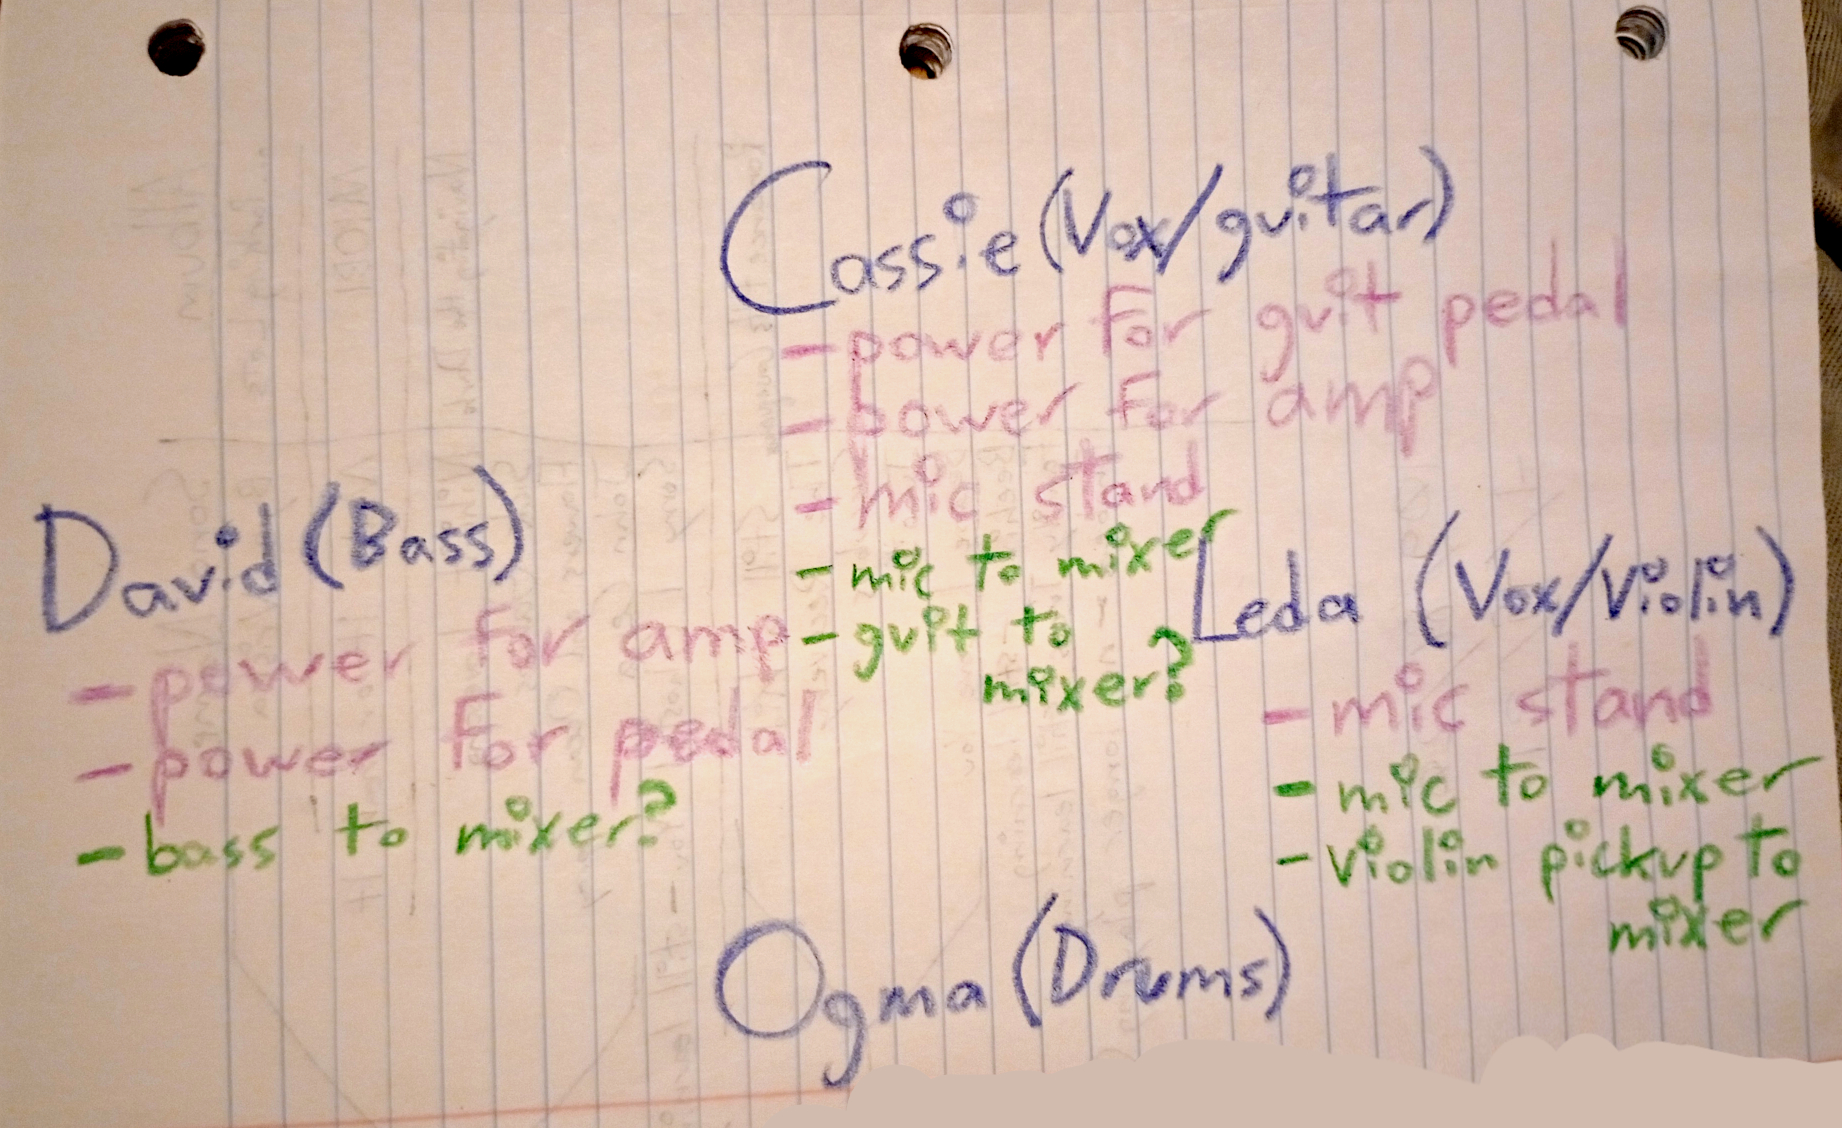 Cassie (Vox/guitar)
- power for guit pedal
- power for amp
- mic stand
- mic to mixer
- guit to
mixer?
David (Bass)
- power for amp
- power for pedal
- bass to mixer?
Leda (Vox/Violin)
- mic stand
- mic to mixer
- violin pickup to
mixer
Ogma (Drums)